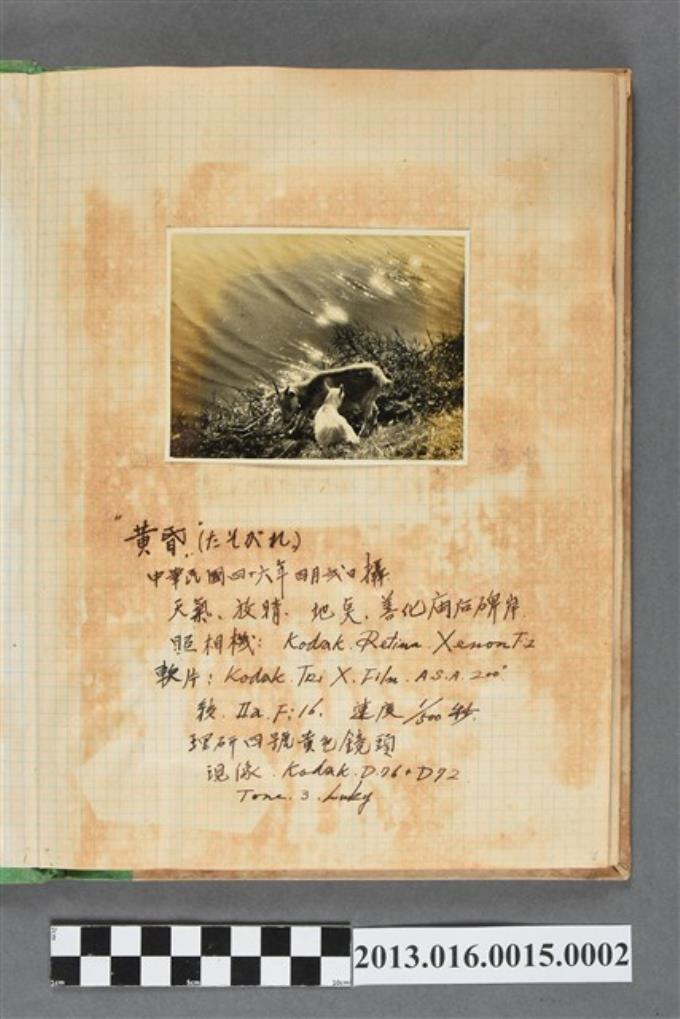 "黃昏"(たそがれ)
中華民國四十六年四月弍日攝
天氣、放晴. 地点、善化庙后碑岸.
照相機: Kodak. Retina. Xenon F:2
軟片: Kodak. Tri X. Film. A.S.A. 200°
IIa. F:16. 速度 1/500 秒.
理研四號黄色鏡頭
現像. Kodak. D.76 + D72
Tone. 3. Lucky
1cm 5cm 10cm
2013.016.0015.0002